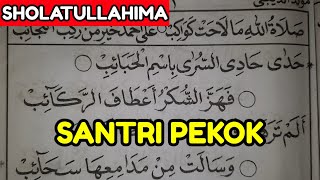 SHOLATULLAHIMA
صَلَاةُ اللهِ مَا لَاحَتْ كَوَاكِبْ عَلَى أَحْمَدْ خَيْرِ مَنْ رَكِبَ النَّجَائِبْ
حَدٰى حَادِى السُّرٰى بِاسْمِ الْحَبَائِبْ
فَهَزَّ السُّكْرُ أَعْطَافَ الرَّكَائِبْ
SANTRI PEKOK
أَلَمْ تَرَ
وَسَالَتْ مِنْ مَدَامِعِهَا سَحَائِبْ